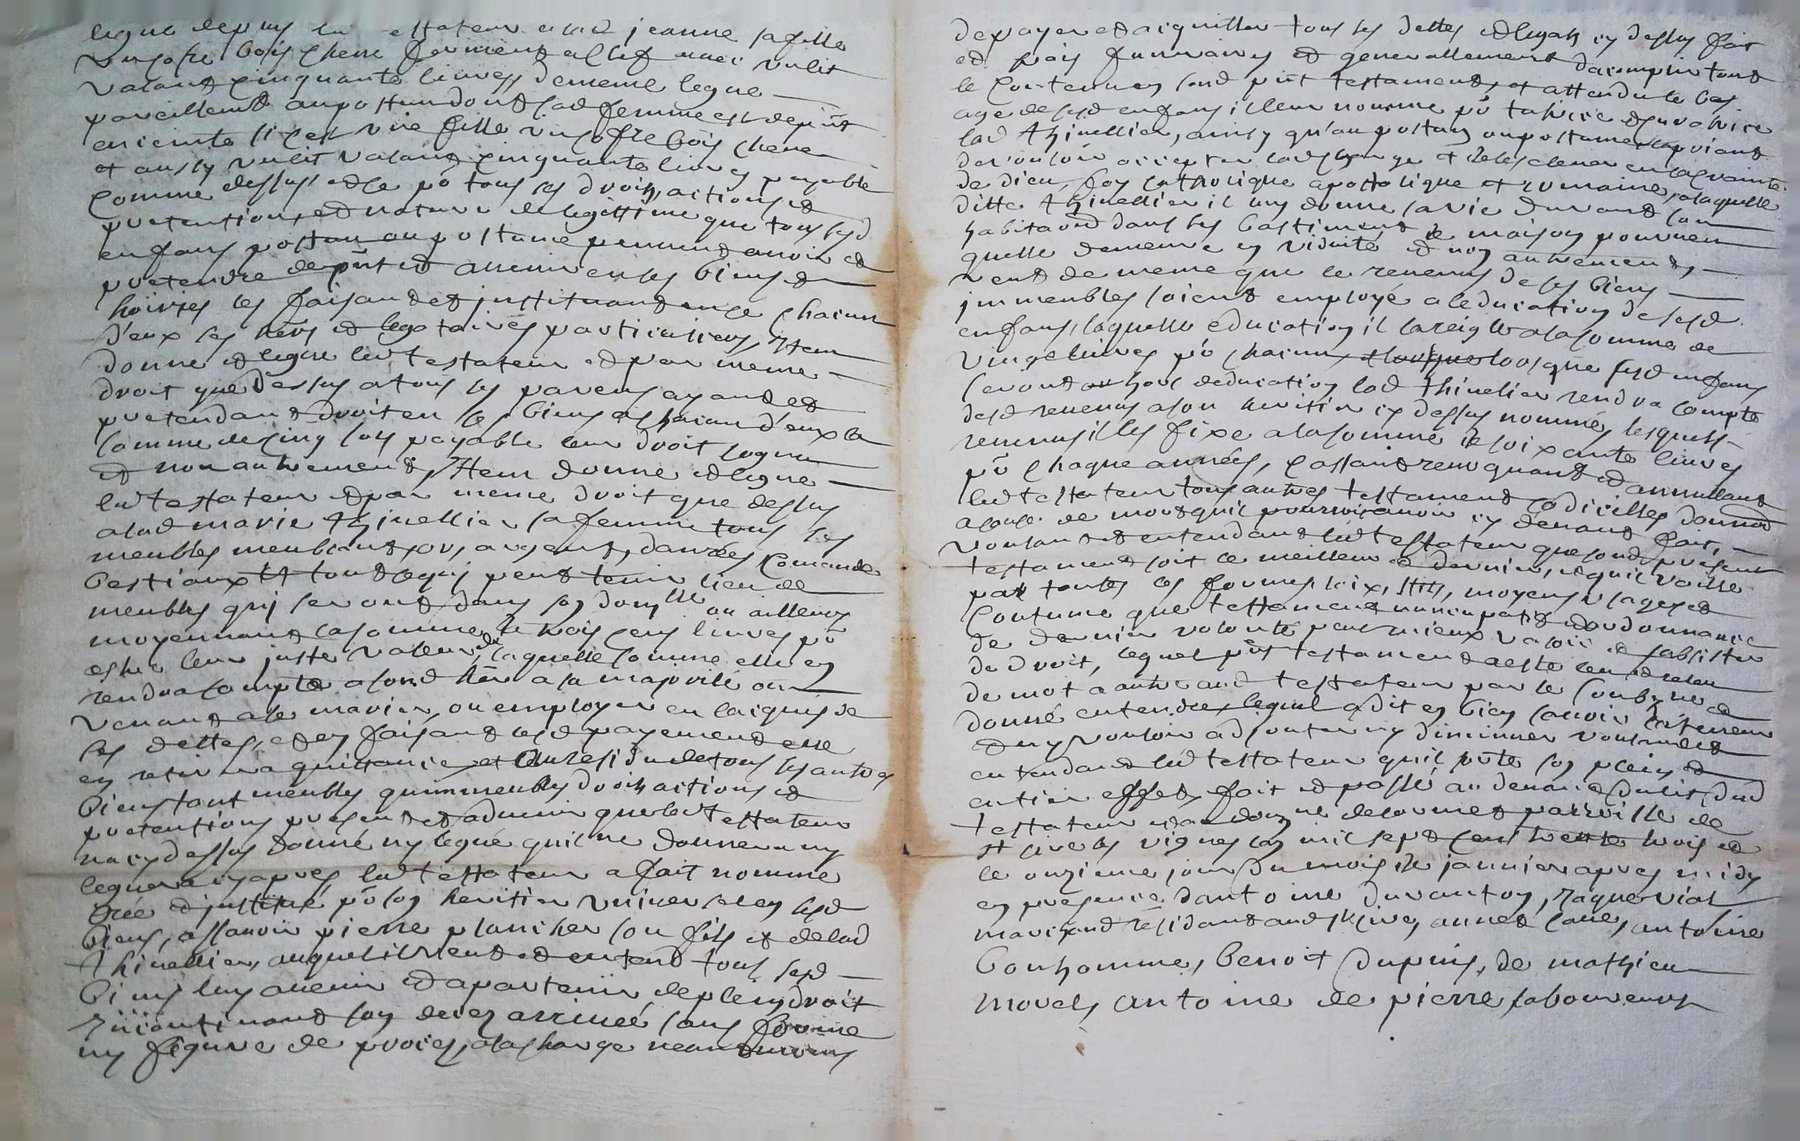 legue depuis led testateur a lad jeanne sa fille
un cofre bois chene fermant a clef avec un lit
valant cinquante livres, de meme legue
pareillement au postum dont lad femme est de pnt
enceinte si c'est une fille un coffre bois chene
et aussy un lit valant cinquante livres payable
comme dessus et ce pō tous ses droits actions et
pretentions et nature de legittime que tous sesd
enfans postum ou postume peuvent avoir et
pretendre de pnt et avenir en ses biens et
hoiries les faisant et instituant en ce chacun
d'eux ses hers et legataires particuliers, Item
donne et legue led testateur et par meme
droit que dessus a tous ses parens ayant et
pretendant droit en ses biens a chacun d'eux la
somme de cinq sols payable leur droit cognu
et non autrement, Item donne et legue
led testateur et par meme droit que dessus
a lad marie thinellier sa femme tous ses
meubles meublant, or, argent, danrées comande
bestiaux et tout ce qui peut tenir lieu de
meubles qui seront dans son domlle ou ailleurs
moyennant la somme de trois cens livres pō
estre leur juste valeur de laquelle somme elle en
rendra compte a sond her a sa majorité ou
venant a se marier, ou employer en l'acquis de
ses dettes, et en faisant lesd payement elle
en retirera quittance, et au residu de tous ses autres
biens tant meubles qu'immeubles droits actions et
pretentions present et advenir que led testateur
n'a cy dessus donné ny legué qu'il ne donnera ny
leguera cy apres led testateur a fait nommé
créé et institué pō son heritier universel en sesd
biens, a scavoir pierre planchet son fils et de lad
thinellier, auquel il veut et entend tous sesd
biens luy avenir et apartenir de plein droit
Incontinant son decez arrivé sans forme
ny figure de procez, a la charge neantmoins
de payer et acquitter tous ses dettes et legats cy dessus fait
et frais funerairs et generallement d'acomplir tout
le contenu en sond pnt testament, et attendu le bas
age de sesd enfans il leur nomme pō tutrice et curatrice
lad thinellier, ainsy qu'au postum ou postume la priant
de vouloir accepter lad charge et de les elever en la crainte
de dieu, foy catholique apostolique et romaine, a laquelle
ditte thinellier il luy donne sa vie durant son
habitaōn dans ses bastiments de maison pourveu
quelle demeure en viduité et non autrement,
veut de meme que le revenus de ses biens
immeubles soient employé a l'education de sesd
enfans, laquelle education il la reigle a la somme de
vingt livres pō chacun lorsque sesd enfans
seront hors d'education lad thinellier rendra compte
desd revenus a son heritier cy dessus nommé, lesquels
revenus il les fixe a la somme de soixante livres
pō chaque années, cassant revoquant et annullant
led testateur tous autres testament codicilles donnaōn
a cause de mort qu'il pourroit avoir cy devant fait,
voulant et entendant led testateur que sond present
testament soit le meilleur et dernier, et qu'il vaille
par toutes les formes, loix, stils, moyens usages et
coutume que testament nuncupatif et ordonnance
de derniere volonté peut mieux valoir et subsister
de droit, lequel pnt testament a esté leu et releu
de mot a autre aud testateur par le soubzne et
donné entendre, lequel a dit en bien scavoir la teneur
et n'y vouloir adjouter ny diminuer voulant et
entendant led testateur qu'il sorte son plein et
entier effet, fait et passé au devant du lit dud
testateur et au domne de sorme parroisse de
st cire les vignes l'an mil sept cent trente trois et
le onzieme jour du mois de janvier apres midy
en presence d'antoine duranton, jaque vial
marchand residant aud st cire, annet cave, antoine
bonhomme, benoit dupuis, de mathieu
morel, antoine de pierre laboureurs